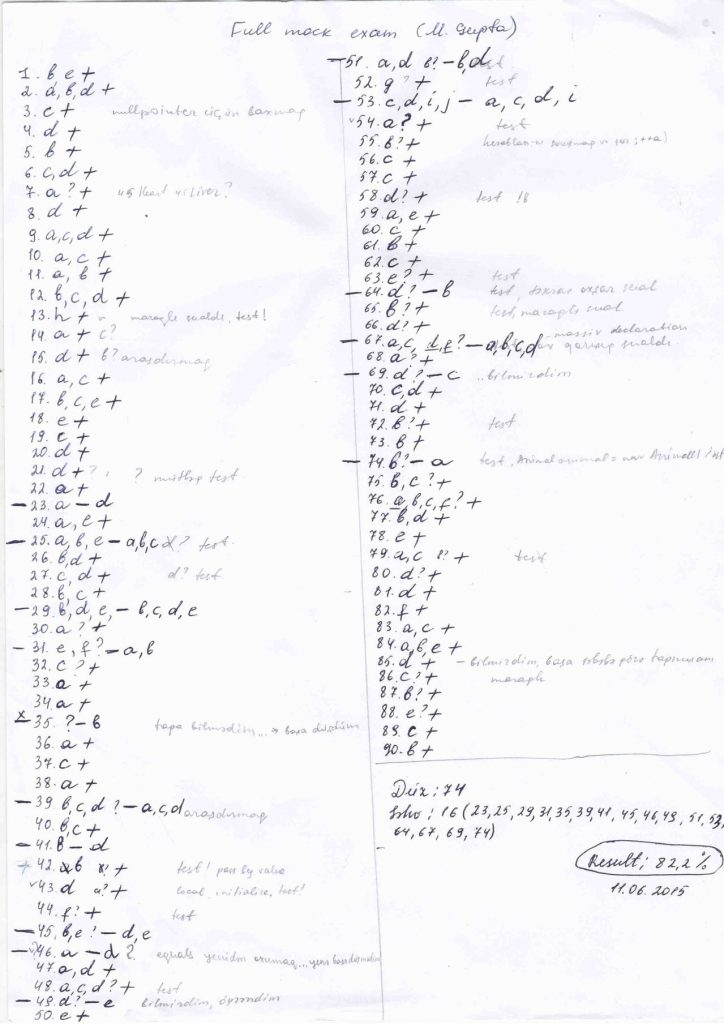 Full mock exam (M. Gupta)
1. b e +
2. a, b, d +
3. c + nullpointer üçün baxmaq
4. d +
5. b +
6. c, d +
7. a ? +
8. d +
9. a, c, d +
10. a, c +
11. a, b +
12. b, c, d +
13. h + v maraqlı sualdı, test!
14. a + c?
15. d + b? araşdırmaq
16. a, c +
17. b, c, e +
18. e +
19. c +
20. d +
21. d + ? ? test
22. a +
- 23. a - d
24. a, e +
- 25. a, b, e - a,b,c d? test
26. b, d +
27. c, d + d? test
28. b, c +
- 29. b, d, e, - b, c, d, e
30. a ? +
- 31. e, f ? - a, b
32. c ? +
33. a +
34. a +
x 35. ? - b tapa bilmədim... → başa düşdüm
36. a +
37. c +
38. a +
- 39. b, c, d ? - a, c, d araşdırmaq
40. b, c +
- 41. b - d
+ 42. b + test! pass by value
v 43. d a? + local, initialize, test!
44. f? + test
- 45. b, e ? - d, e
- 46. a - d ? equals yenidən oxumaq...
47. a, d +
48. a, c, d ? + test
- 49. d? - e bilmirdim, öyrəndim
50. e +
- 51. a, d b? - b, d test
52. g ? + test
- 53. c, d, i, j - a, c, d, i
v 54. a? + test
55. b? +
56. c +
57. c +
58. d? + test !8
59. a, e +
60. c +
61. b +
62. c +
63. e? + test
- 64. d? - b test, sual
65. b? + test, maraqlı sual
66. d? +
- 67. a, c, d, f? - a, b, c, d massiv declaration
68. a? +
- 69. d? - c bilmirdim
70. c, d +
71. d +
72. b? + test
73. b +
- 74. b? - a test, Animal animal = new
75. b, c? +
76. a, b, c, f? +
77. b, d +
78. e +
79. a, c b? + test
80. d? +
81. d +
82. f +
83. a, c +
84. a, b, e +
85. d + - bilmirdim, başa
86. c? + maraqlı
87. b? +
88. e? +
89. c +
90. b +
Düz : 74
Səhv : 16 (23, 25, 29, 31, 35, 39, 41, 45, 46, 49, 51, 53,
64, 67, 69, 74)
Result: 82,2%
11.06.2015